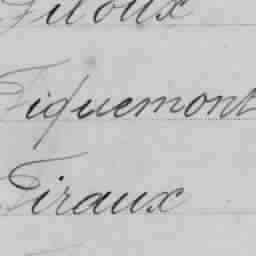 Piloux
Piquemont
Piraux